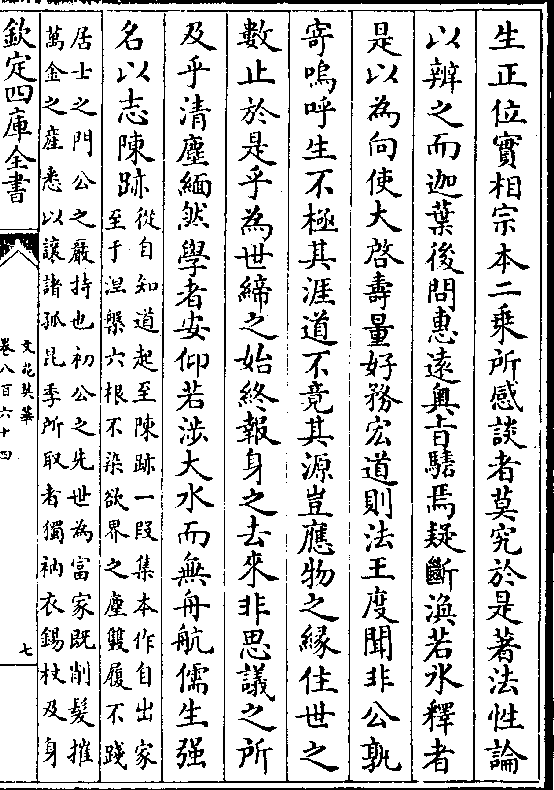 生正位實相宗本二乘所感談者莫究於是著法性論
以辨之而迦葉後問惠遠奥旨驍焉疑斷渙若氷釋者
是以為向使大啓壽量好務宏道則法王度聞非公孰
寄嗚呼生不極其涯道不竟其源豈應物之緣住世之
數止於是乎為世締之始終報身之去來非思議之所
及乎清塵緬然學者安仰若涉大水而無舟航儒生强
名以志陳跡從自知道起至陳跡一段集本作自出家
至于涅槃六根不染欲界之塵雙履不踐
居士之門公之嚴持也初公之先世為富家既削髮摧
萬金之産悉以讓諸孤昆季所取者獨衲衣錫杖及身
欽定四庫全書
文苑英華
卷八百六十四
七